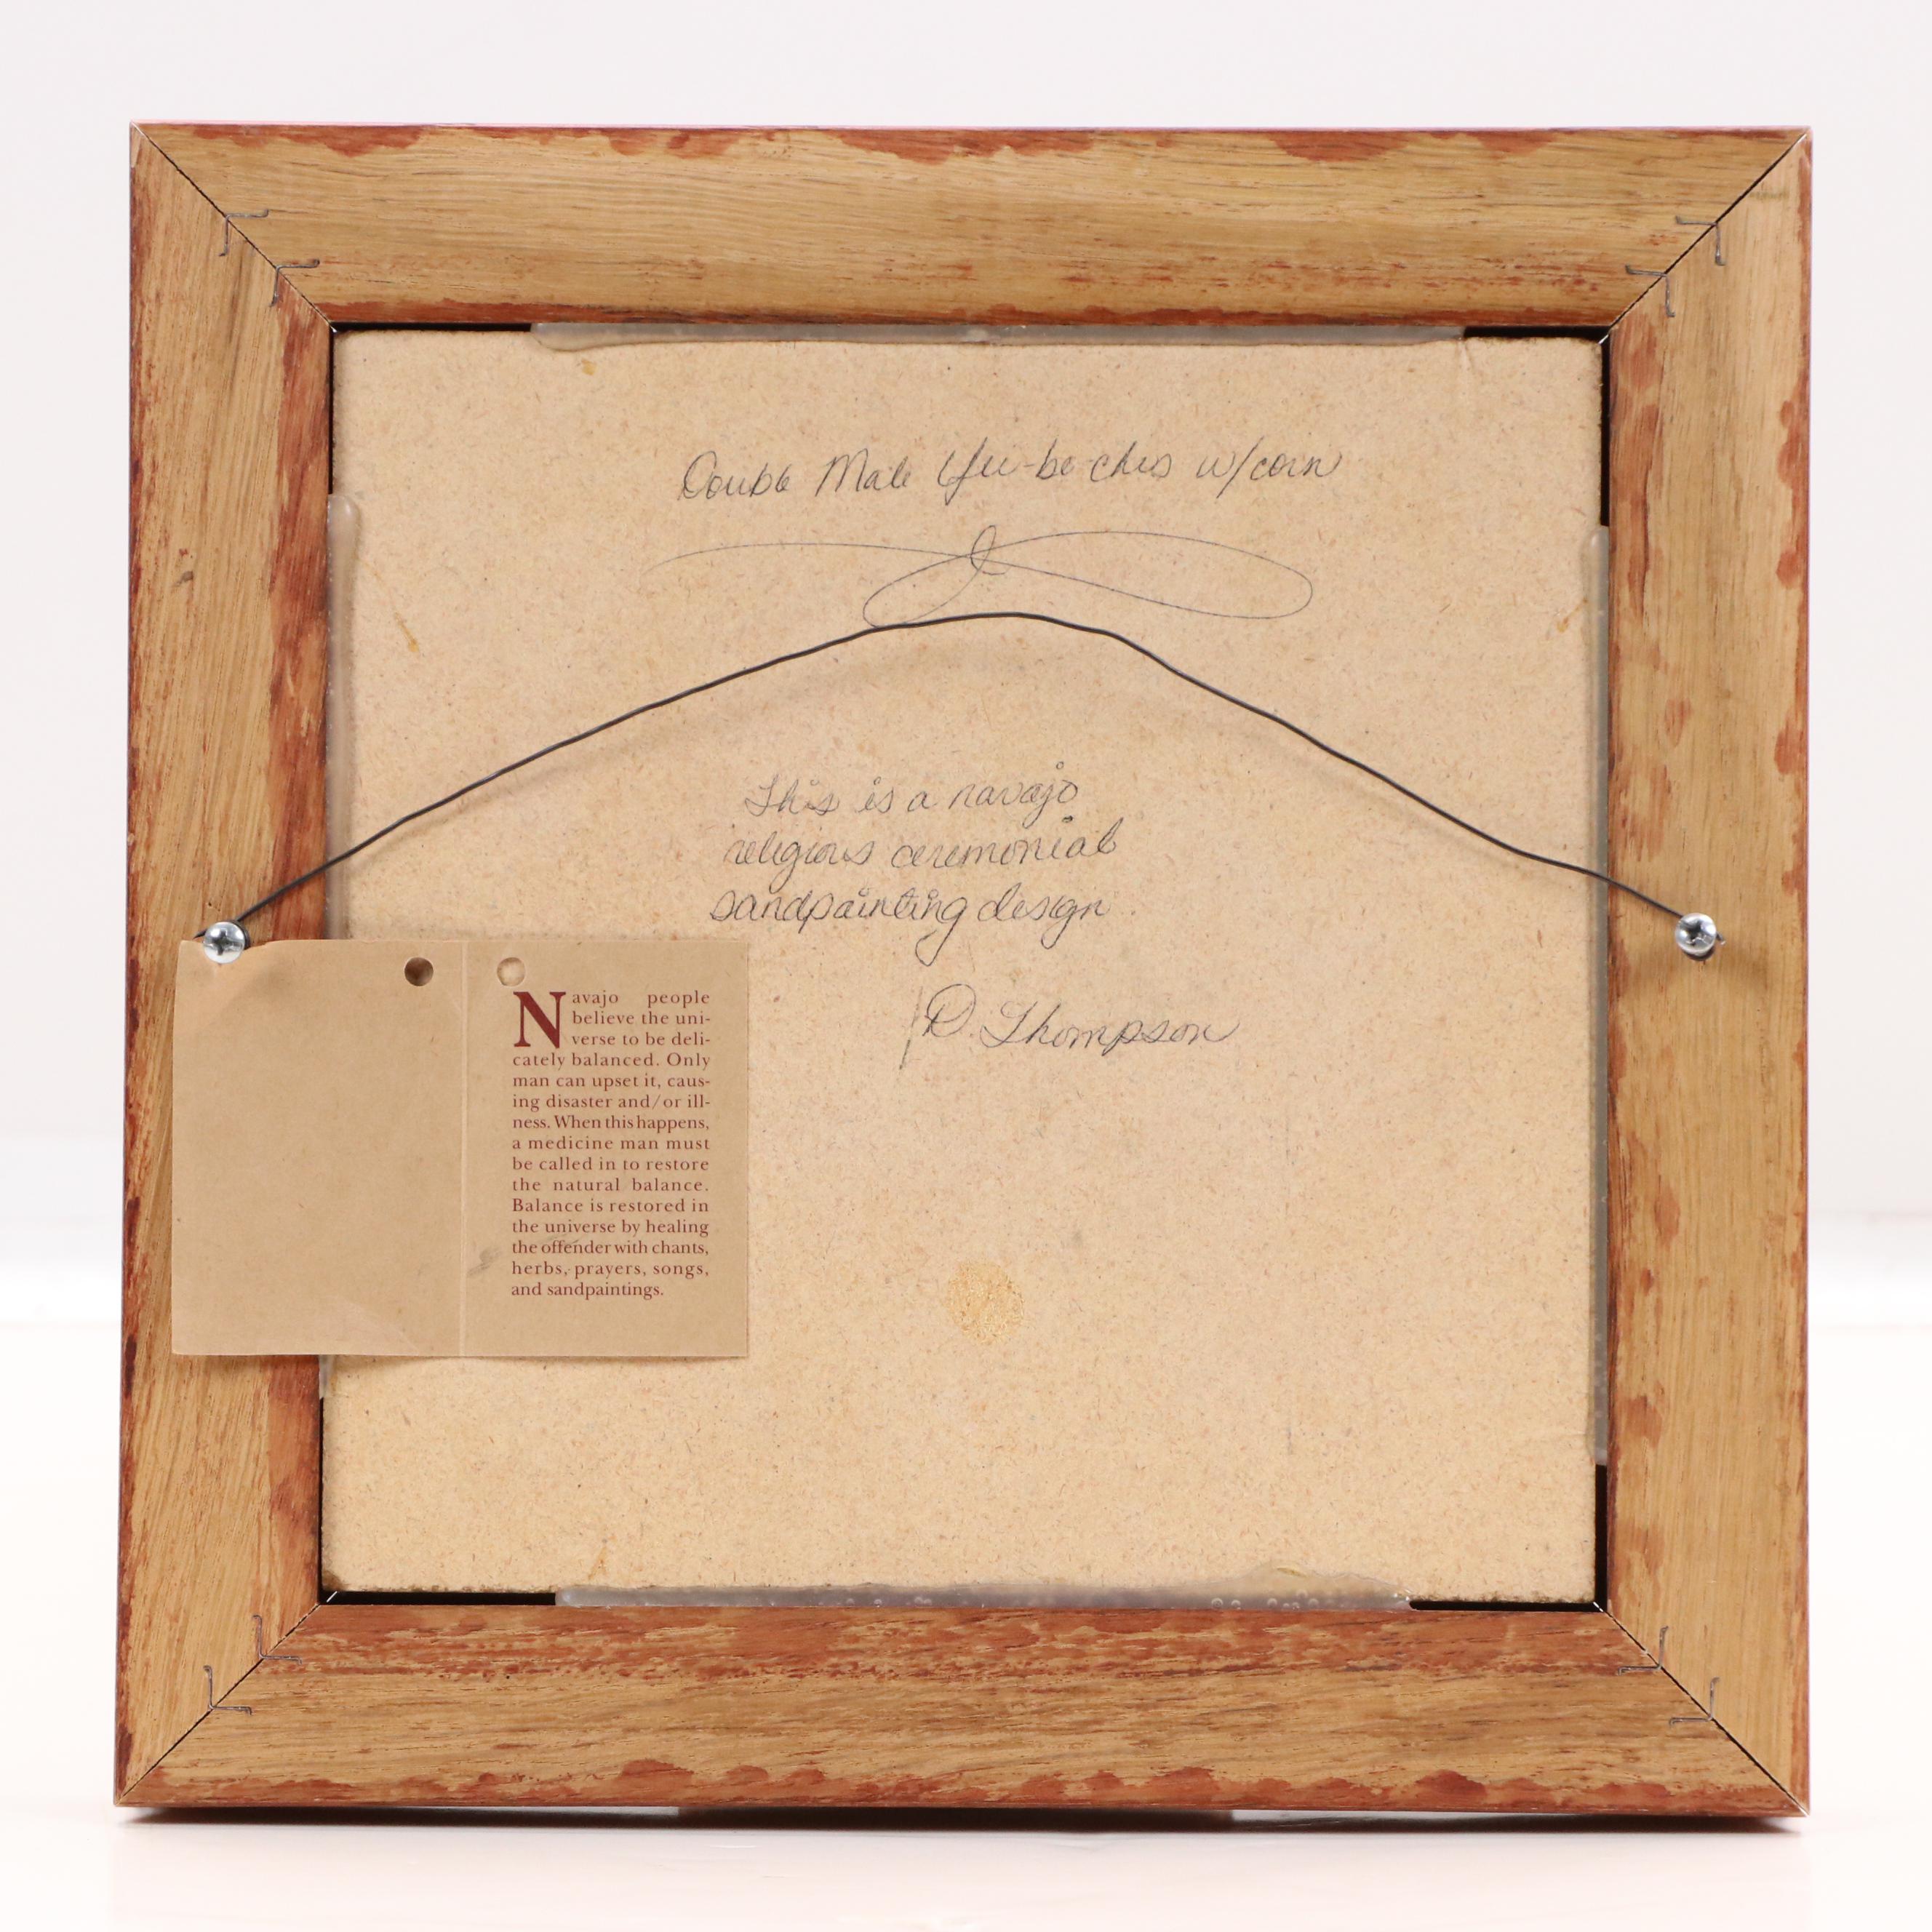 Double Male Yei-be-ches w/corn
This is a navajo
religious ceremonial
sandpainting design.
D. Thompson
Navajo people
believe the uni-
verse to be deli-
cately balanced. Only
man can upset it, caus-
ing disaster and/or ill-
ness. When this happens,
a medicine man must
be called in to restore
the natural balance.
Balance is restored in
the universe by healing
the offender with chants,
herbs, prayers, songs,
and sandpaintings.